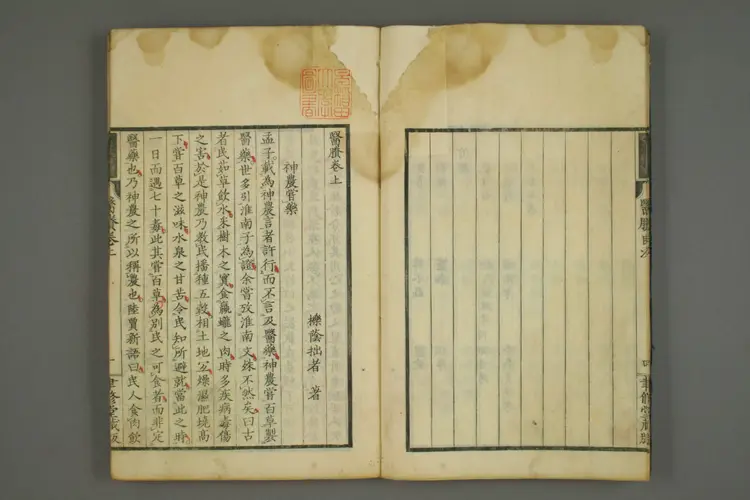 醫賸卷上
櫟蔭拙者 著
神農嘗藥
孟子載為神農言者許行而不言及醫藥神農嘗百草製
醫藥世多引淮南子為證余嘗攷淮南文殊不然矣曰古
者民茹草飲水采樹木之實食蠃蠬之肉時多疾病毒傷
之害於是神農乃教民播種五穀相土地宜燥濕肥墝高
下嘗百草之滋味水泉之甘苦令民知所避就當此之時
一日而遇七十毒此其嘗百草為別民之可食者而非定
醫藥也乃神農之所以稱農也陸賈新語曰民人食肉飲
醫賸卷上
一
聿修堂藏版
醫賸目次
四
聿修堂藏版